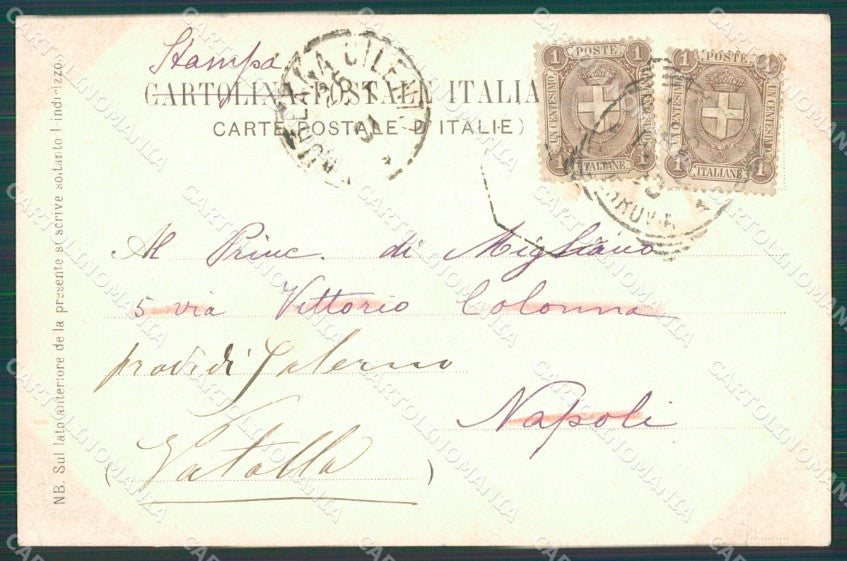 Stampa
CARTOLINA POSTALE ITALIA
CARTE POSTALE D'ITALIE)
1 POSTE 1
UN CENTESIMO
UN CENTESIMO
1 ITALIANE 1
1 POSTE 1
UN CENTESIMO
UN CENTESIMO
1 ITALIANE 1
CILEN
FERROVIA
Al Princ. di Migliano
5 via Vittorio Colonna
prov. di Salerno
Napoli
(Vatolla)
NB. Sul lato anteriore de la presente si scrive soltanto l indirizzo
CARTOLINOMANIA